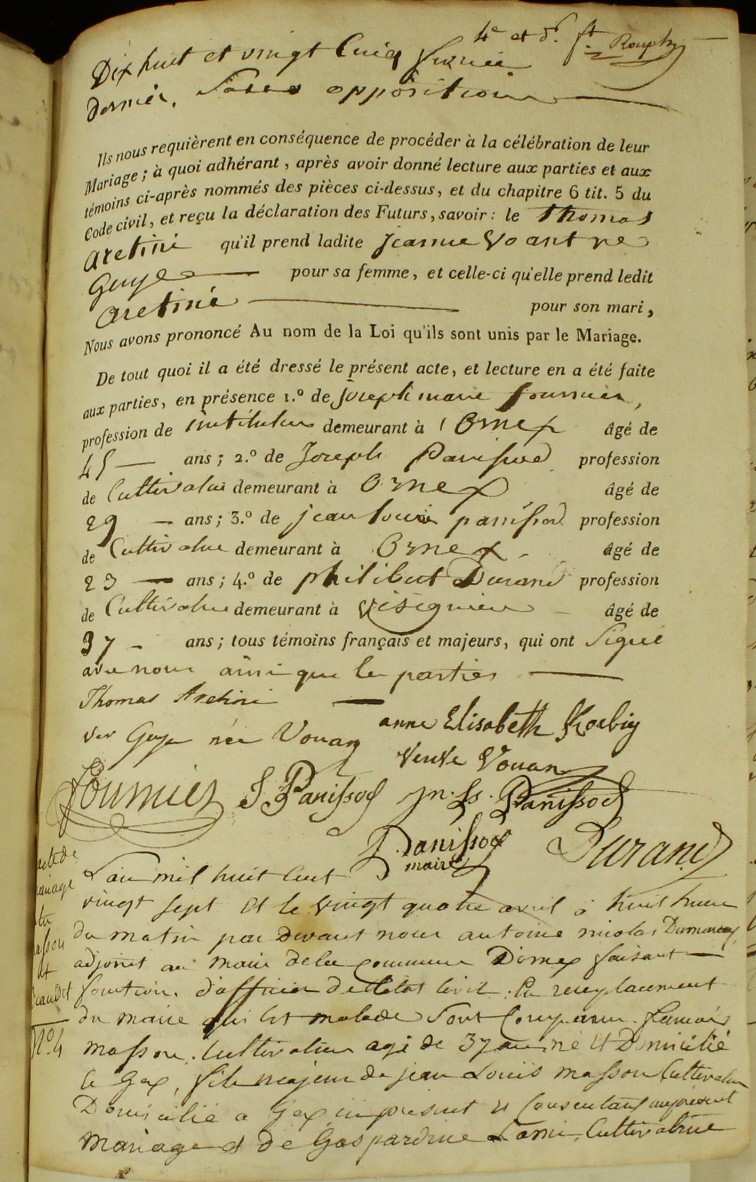 4e et d.r ft
Dix huit et vingt Cinq
dernier. Sans opposition
Ils nous requièrent en conséquence de procéder à la célébration de leur
Mariage ; à quoi adhérant, après avoir donné lecture aux parties et aux
témoins ci-après nommés des pièces ci-dessus, et du chapitre 6 tit. 5 du
Code civil, et reçu la déclaration des Futurs, savoir : le Thomas
Aretini qu'il prend ladite Jeanne
Guye pour sa femme, et celle-ci qu'elle prend ledit
Aretini pour son mari,
Nous avons prononcé Au nom de la Loi qu'ils sont unis par le Mariage.
De tout quoi il a été dressé le présent acte, et lecture en a été faite
aux parties, en présence 1.º de Joseph marie fournier,
profession de instituteur demeurant à Ornex âgé de
45 ans ; 2.º de Joseph Panissod profession
de Cultivateur demeurant à Ornex âgé de
29 ans ; 3.º de jean louis panissod profession
de Cultivateur demeurant à Ornex âgé de
23 ans ; 4.º de philibert Durand profession
de Cultivateur demeurant à âgé de
37 ans ; tous témoins français et majeurs, qui ont Signé
avec nous ainsi que les parties
Thomas Aretini
anne Elisabeth
vve Guye née Vouan
veuve Vouan
Fournier J Panissod jn. Ls. Panissod
Panissod
maire
Durand
acte de
mariage
masson
et
No. 4
L'an mil huit cent
vingt sept et le vingt quatre avril à huit heures
du matin par devant nous antoine nicolas
adjoint au maire de la Commune D'ornex faisant
fonction d'officier de l'Etat Civil. En remplacement
du maire qui Est malade Sont Comparu françois
masson. Cultivateur agé de 37 ans né et Domicilié
à Gex, fils majeur de jean Louis masson Cultivateur
Domicilié a Gex ici présent et Consentant au présent
Mariage et de Gaspardine Lami, Cultivatrice